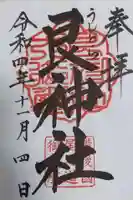 奉拝
うしとら
艮神社
令和四年十一月四日